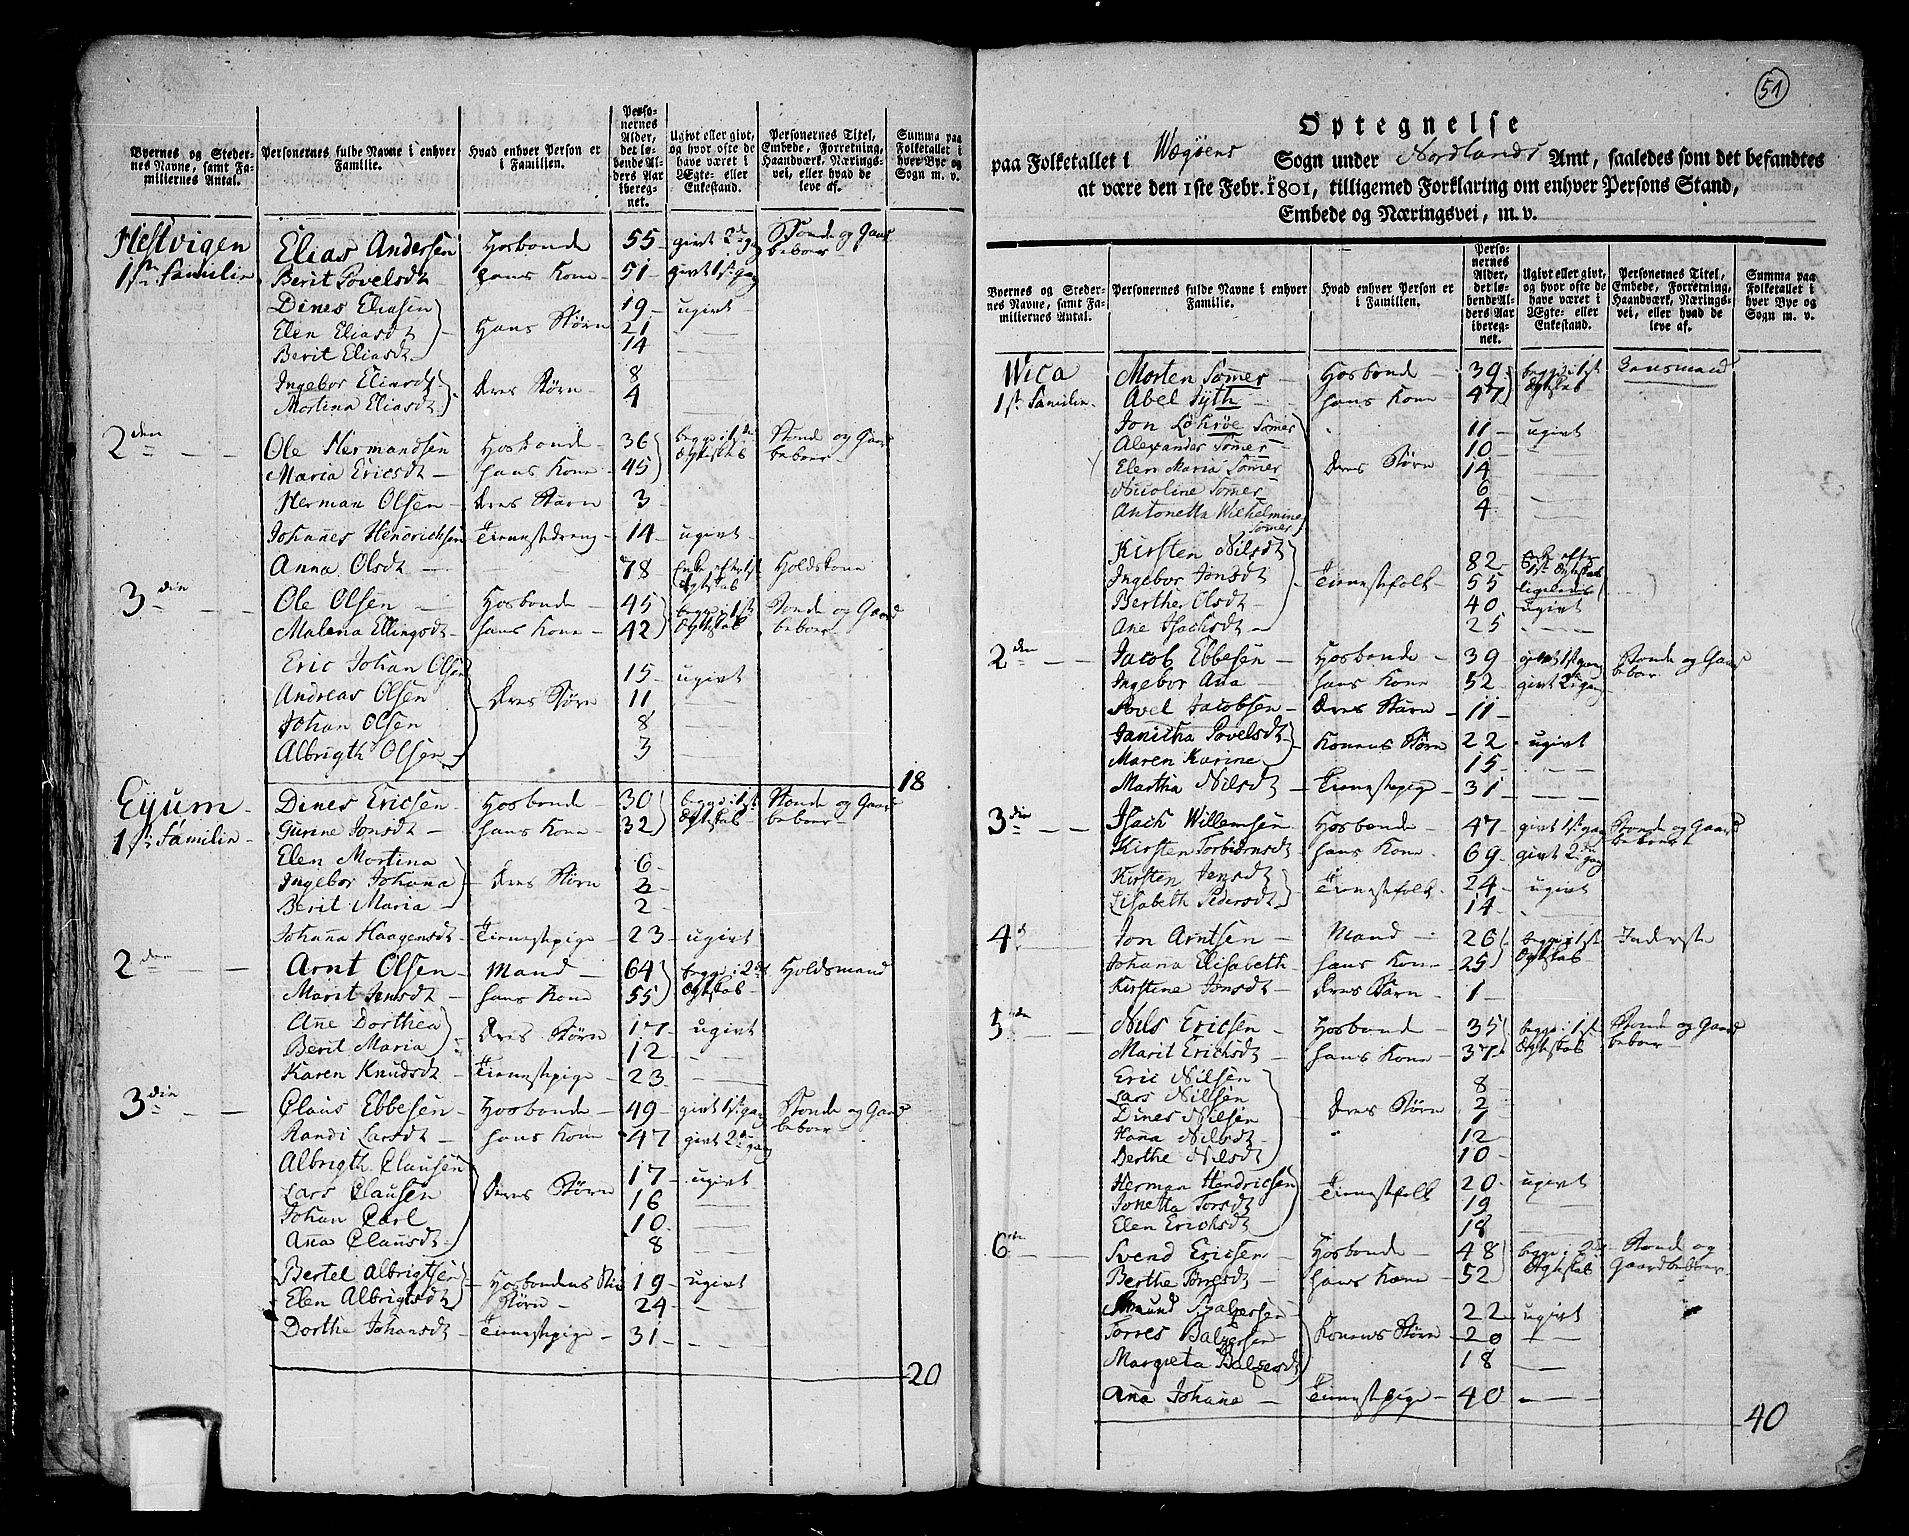 Byernes og Steder-
nes Navne, samt Fa-
miliernes Antal.
Personernes fulde Navne i enhver
Familie.
Hvad enhver Person er
i Familien.
Perso-
nernes
Alder,
det lø-
bende Al-
ders Aar
ibereg-
net.
Ugivt eller givt,
og hvor ofte de
have været i
Ægte- eller
Enkestand.
Personernes Titel,
Embede, Forretning,
Haandværk, Nærings-
vei, eller hvad de
leve af.
Summa paa
Folketallet i
hver Bye og
Sogn m. v.
Hestvigen Elias Andersen Hosbonde 55 givt 2den gang Bonde og Gaard beboer
1ste Familie Berit Povelsdt hans Kone 51 givt 1ste gang
Dines Eliasen 19 ugivt
Elen Eliasdt Hans Børn 21
Berit Eliasdt 14
Ingebor Eliasdt 8
Mortina Eliasdt Deres Børn 4
2den Ole Hermandsen Hosbonde 36 begge i 1ste Bonde og Gaard
Maria Ericsdt hans Kone 45 Ægteskab beboer
Herman Olsen Deres Barn 3
Johannes Hendrichsen Tienestedreng 14 ugivt
Anna Olsdt 78 Enke efter 1ste Ægteskab Holdskone
3die Ole Olsen Hosbonde 45 begge i 1ste Bonde og Gaard
Malena Ellingsdt hans Kone 42 Ægteskab beboer
Eric Johan Olsen 15 ugivt
Andreas Olsen Deres Børn 11
Johan Olsen 8
Albrigth Olsen 3
18
Eyum Dines Ericsen Hosbonde 30 begge i 1ste Bonde og Gaard
1ste Familie Gurine Jonsdt hans Kone 32 Ægteskab beboer
Elen Mortina 6
Ingebor Johanna Deres Børn 3
Berit Maria 2
Johanna Haagensdt Tienestepige 23 ugivt
2den Arnt Olsen Mand 64 begge i 2det Holdsmand
Marit Jensdt hans Kone 55 Ægteskab
Ane Dorthea 17 ugivt
Berit Maria Deres Børn 12
Karen Knudsdt Tienestepige 23
3die Claus Ebbesen Hosbonde 49 givt 1ste gang Bonde og Gaard
Randi Larsdt hans Kone 47 givt 2den gang beboer
Albrigth Clausen 17 ugivt
Lars Clausen Deres Børn 16
Johan Carl 10
Ana Clausdt 8
Bertel Albrigtsen Hosbondens Stiv 19 ugivt
Elen Albrigtsdt Børn 24
Dorthe Johansdt Tienestepige 31
20
51
Optegnelse
paa Folketallet i Wægøens Sogn under Nordlands Amt, saaledes som det befandtes
at være den 1ste Febr. 1801, tilligemed Forklaring om enhver Persons Stand,
Embede og Næringsvei, m. v.
Byernes og Steder-
nes Navne, samt Fa-
miliernes Antal.
Personernes fulde Navne i enhver
Familie.
Hvad enhver Person er
i Familien.
Perso-
nernes
Alder,
det lø-
bende Al-
ders Aar
ibereg-
net.
Ugivt eller givt,
og hvor ofte de
have været i
Ægte- eller
Enkestand.
Personernes Titel,
Embede, Forretning,
Haandværk, Nærings-
vei, eller hvad de
leve af.
Summa paa
Folketallet i
hver Bye og
Sogn m. v.
Wica Morten Somer Hosbonde 39 begge i 1ste Lensmand
1ste Familie Abel Tyth hans Kone 47 Ægteskab
Jon Somer 11 ugivt
Alexander Somer 10
Elen Maria Somer Deres Børn 14
Nicoline Somer 6
Antonetta Wilhelmine Somer 4
Kirsten Nilsdt 82 Enke efter 1ste Ægteskab
Ingebor Jonsdt Tienestefolk 55 ligeledes
Berthe Olsdt 40 ugivt
Ane Isachsdt 25
2den Jacob Ebbesen Hosbonde 39 givt 1ste gang Bonde og Gaard
Ingebor Ana hans Kone 52 givt 2den gang beboer
Povel Jacobsen Deres Barn 11
Janicha Povelsdt Konens Børn 22 ugivt
Maren Karine 15
Martha Nilsdt Tienestepige 31
3die Isach Willemsen Hosbonde 47 givt 1ste gang Bonde og Gaard
Kirsten Torbiørnsdt hans Kone 69 givt 2den gang beboer
Kirsten Jensdt Tienestefolk 24 ugivt
Lisabeth Pedersdt 14
4d Jon Arntsen Mand 26 begge i 1ste Inderste
Johana Elisabeth hans Kone 25 Ægteskab
Kirstine Jonsdt Deres Barn 1
5te Nils Ericsen Hosbonde 35 begge i 1ste Bonde og Gaard
Marit Ericksdt hans Kone 37 Ægteskab beboer
Eric Nilsen 8
Lars Nilsen 2
Dines Nilsen Deres Børn 1
Hana Nilsdt 12
Berthe Nilsdt 10
Herman Hendricsen 20 ugivt
Jonetta Torsdt Tienestefolk 19
Elen Ericksdt 18
6te Svend Ericsen Hosbonde 48 begge i 2det Bonde og
Berthe Torresdt hans Kone 52 Ægteskab Gaardbeboer
Amund Balzersen 22 ugivt
Torres Balzersen Konens Børn 20
Margreta Balzersdt 18
Ana Johana Tienestepige 40
40